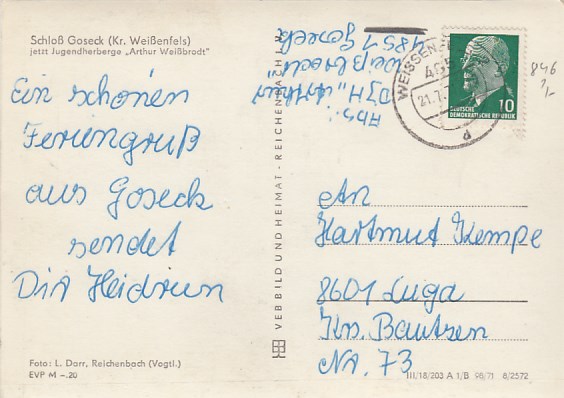 Schloß Goseck (Kr. Weißenfels)
jetzt Jugendherberge „Arthur Weißbrodt"
Ein schönen
Feriengruß
aus Goseck
sendet
Dir Heidrun
Foto: L. Darr, Reichenbach (Vogtl.)
EVP M –.20
VEB BILD UND HEIMAT · REICHENBACH i. V.
Abs.:
DJH „Arthur
Weißbrodt"
4851 Goseck
WEISSENFELS
21.7.
d
10
DEUTSCHE
DEMOKRATISCHE REPUBLIK
846
An
Hartmut Kempe
8601 Luga
Krs. Bautzen
Nr. 73
III/18/203 A 1/B 98/71 8/2572